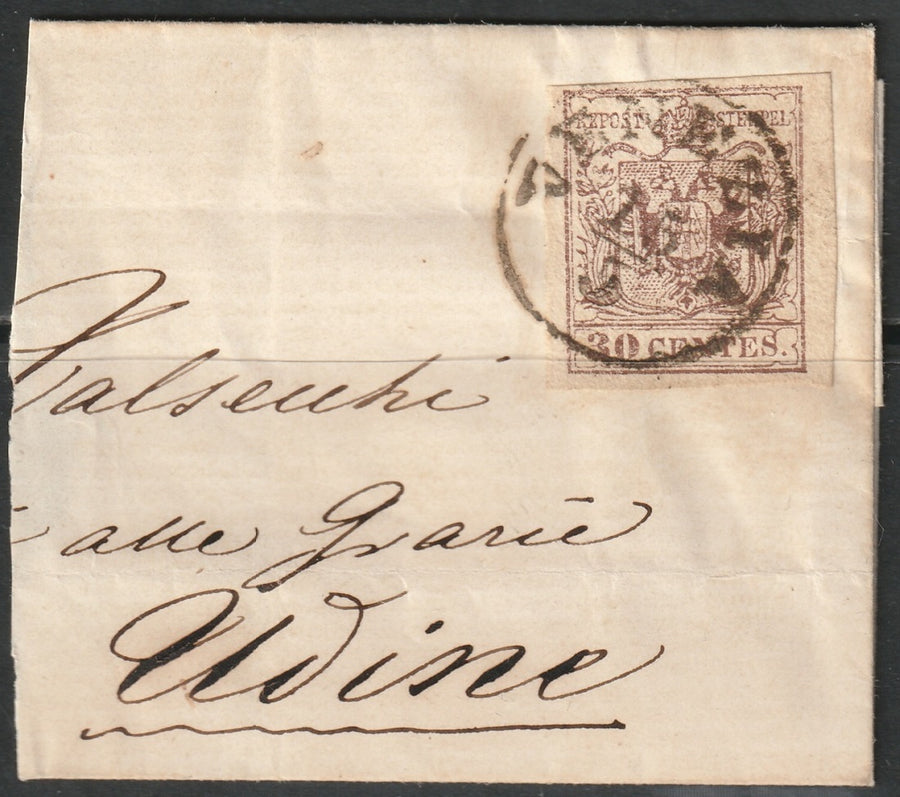 KKPOST STEMPEL
VENEZIA
30 CENTES.
Valsecchi
alle Grazie
Udine